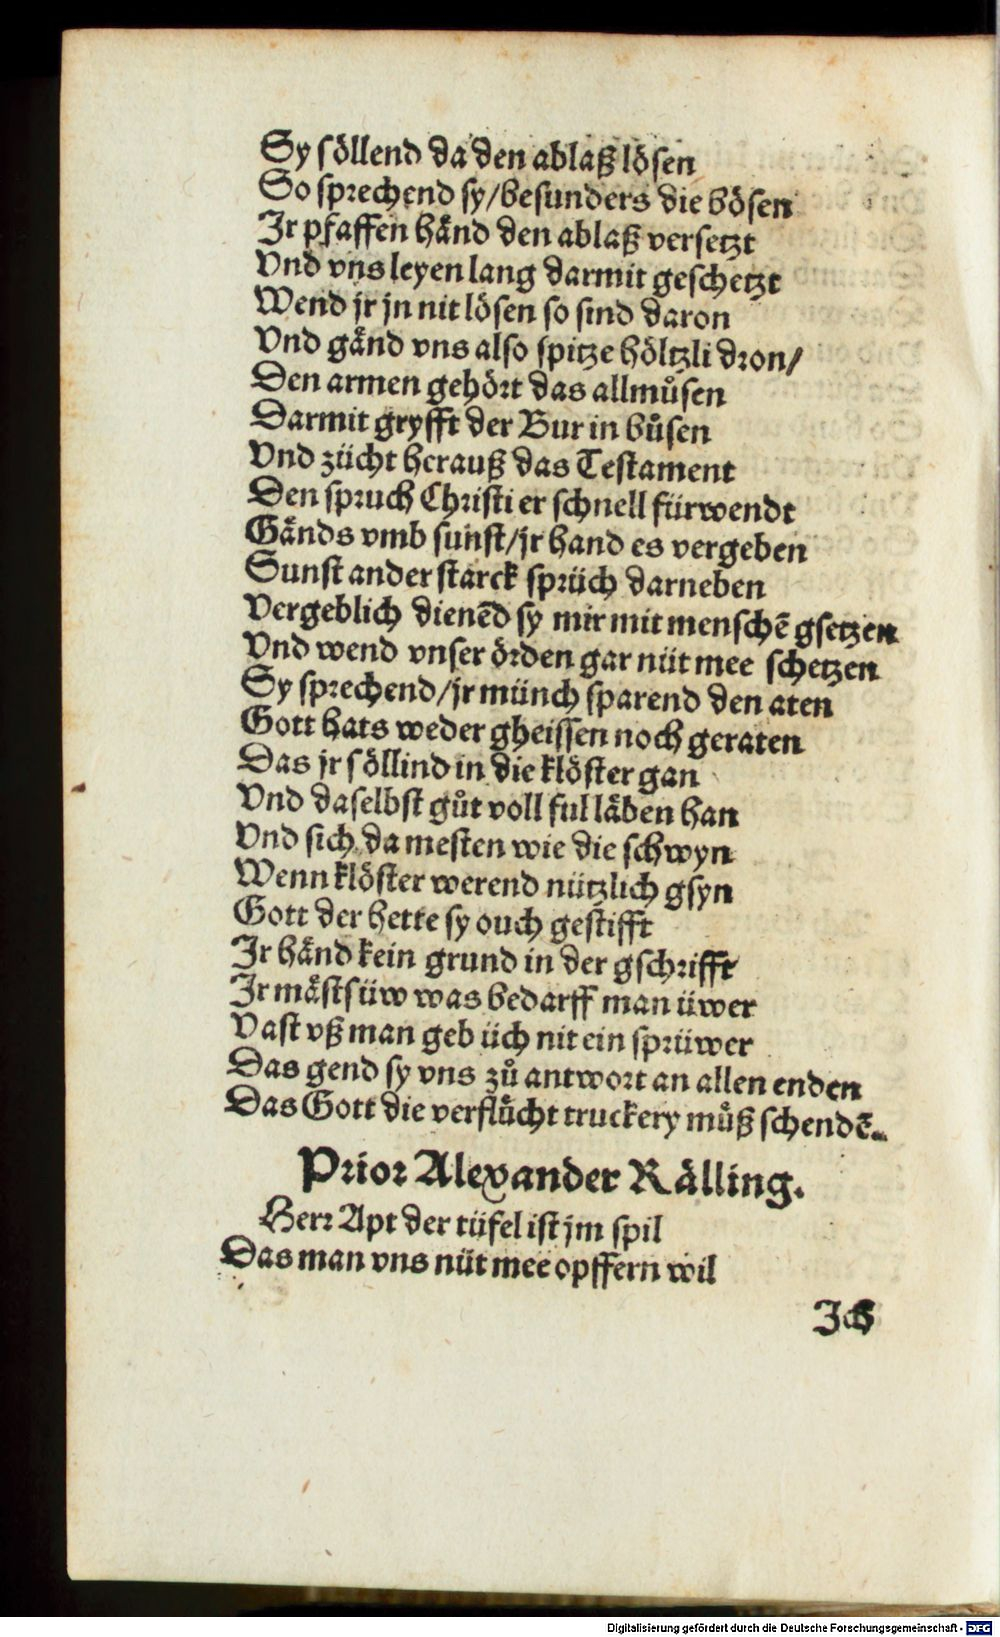 Sy söllend da den ablaß lösen
So sprechend sy/besunders die bösen
Jr pfaffen händ den ablaß versetzt
Vnd vns leyen lang darmit geschetzt
Wend jr jn nit lösen so sind daron
Vnd gänd vns also spitze höltzli dron/
Den armen gehört das allmůsen
Darmit gryfft der Bur in bůsen
Vnd zücht herauß das Testament
Den spruch Christi er schnell fürwendt
Gänds vmb sunst/jr hand es vergeben
Sunst ander starck sprüch darneben
Vergeblich dienēd sy mir mit menschē gsetzen
Vnd wend vnser örden gar nüt mee schetzen
Sy sprechend/jr münch sparend den aten
Gott hats weder gheissen noch geraten
Das jr söllind in die klöster gan
Vnd daselbst gůt voll ful läben han
Vnd sich da mesten wie die schwyn
Wenn klöster werend nützlich gsyn
Gott der hette sy ouch gestifft
Jr händ kein grund in der gschrifft
Jr mästsüw was bedarff man üwer
Vast vß man geb üch nit ein sprüwer
Das gend sy vns zů antwort an allen enden
Das Gott die verflůcht truckery můß schendē.
Prior Alexander Rälling.
Herr Apt der tüfel ist jm spil
Das man vns nüt mee opffern wil
Ich
Digitalisierung gefördert durch die Deutsche Forschungsgemeinschaft - DFG